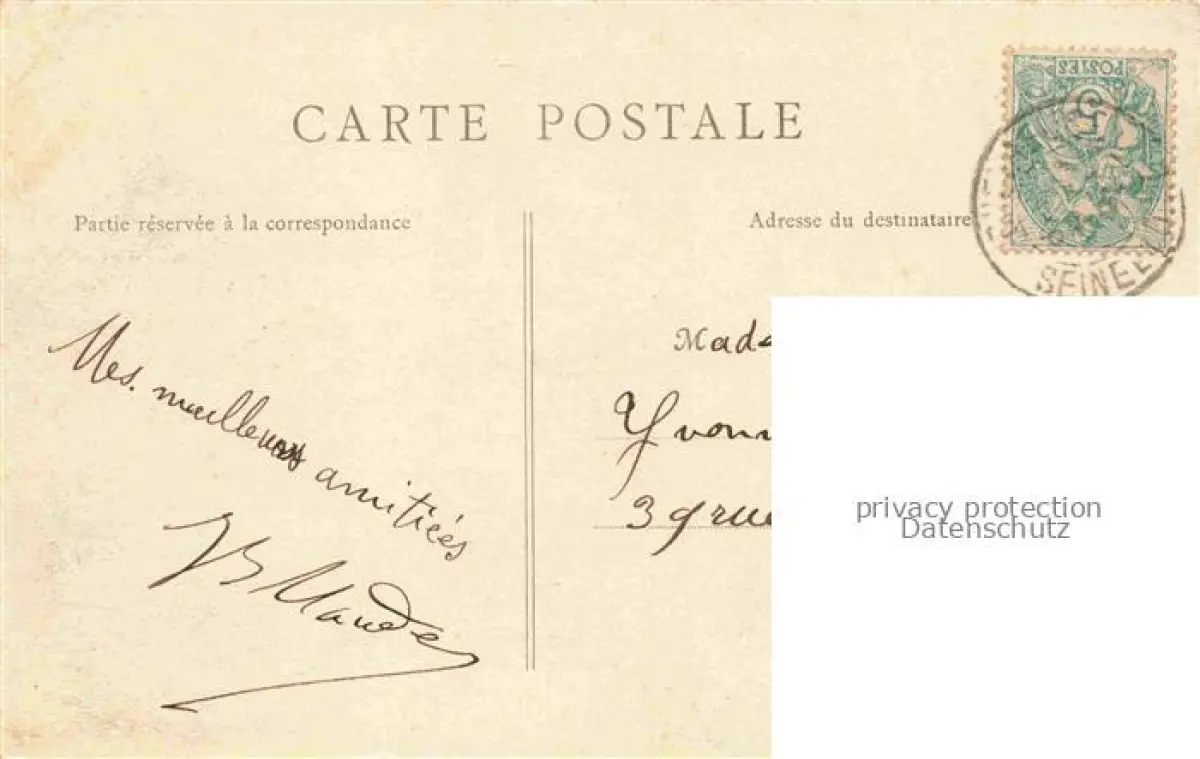 CARTE POSTALE
POSTES
5
Partie réservée à la correspondance
Adresse du destinataire
SEINE
Mes. meilleures
amitiés
Mada
Yvonn
39 rue
privacy protection
Datenschutz